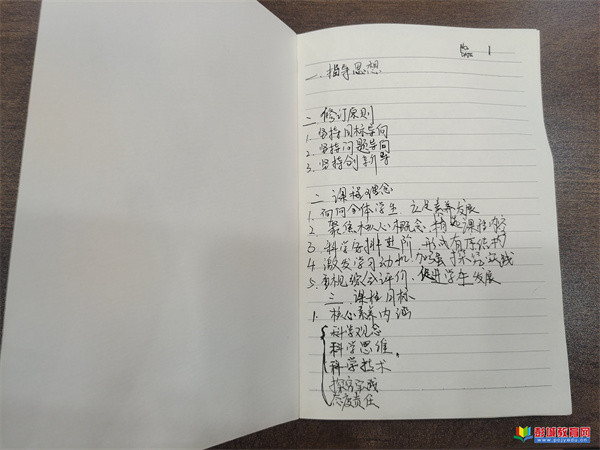 No.
DATE 1
一.指导思想
二.修订原则
1.坚持目标导向
2.坚持问题导向
3.坚持创新导
二.课程理念
1.面向全体学生 立足素养发展
2.聚焦核心概念 精选课程内容
3.科学安排进阶 形成有序结构
4.激发学习动机 加强探究实践
5.重视综合评价,促进学生发展
三.课程目标
1.核心素养内涵
科学观念
科学思维.
科学技术
探究实践
态度责任
彭城教育网
www.pcjyedu.cn